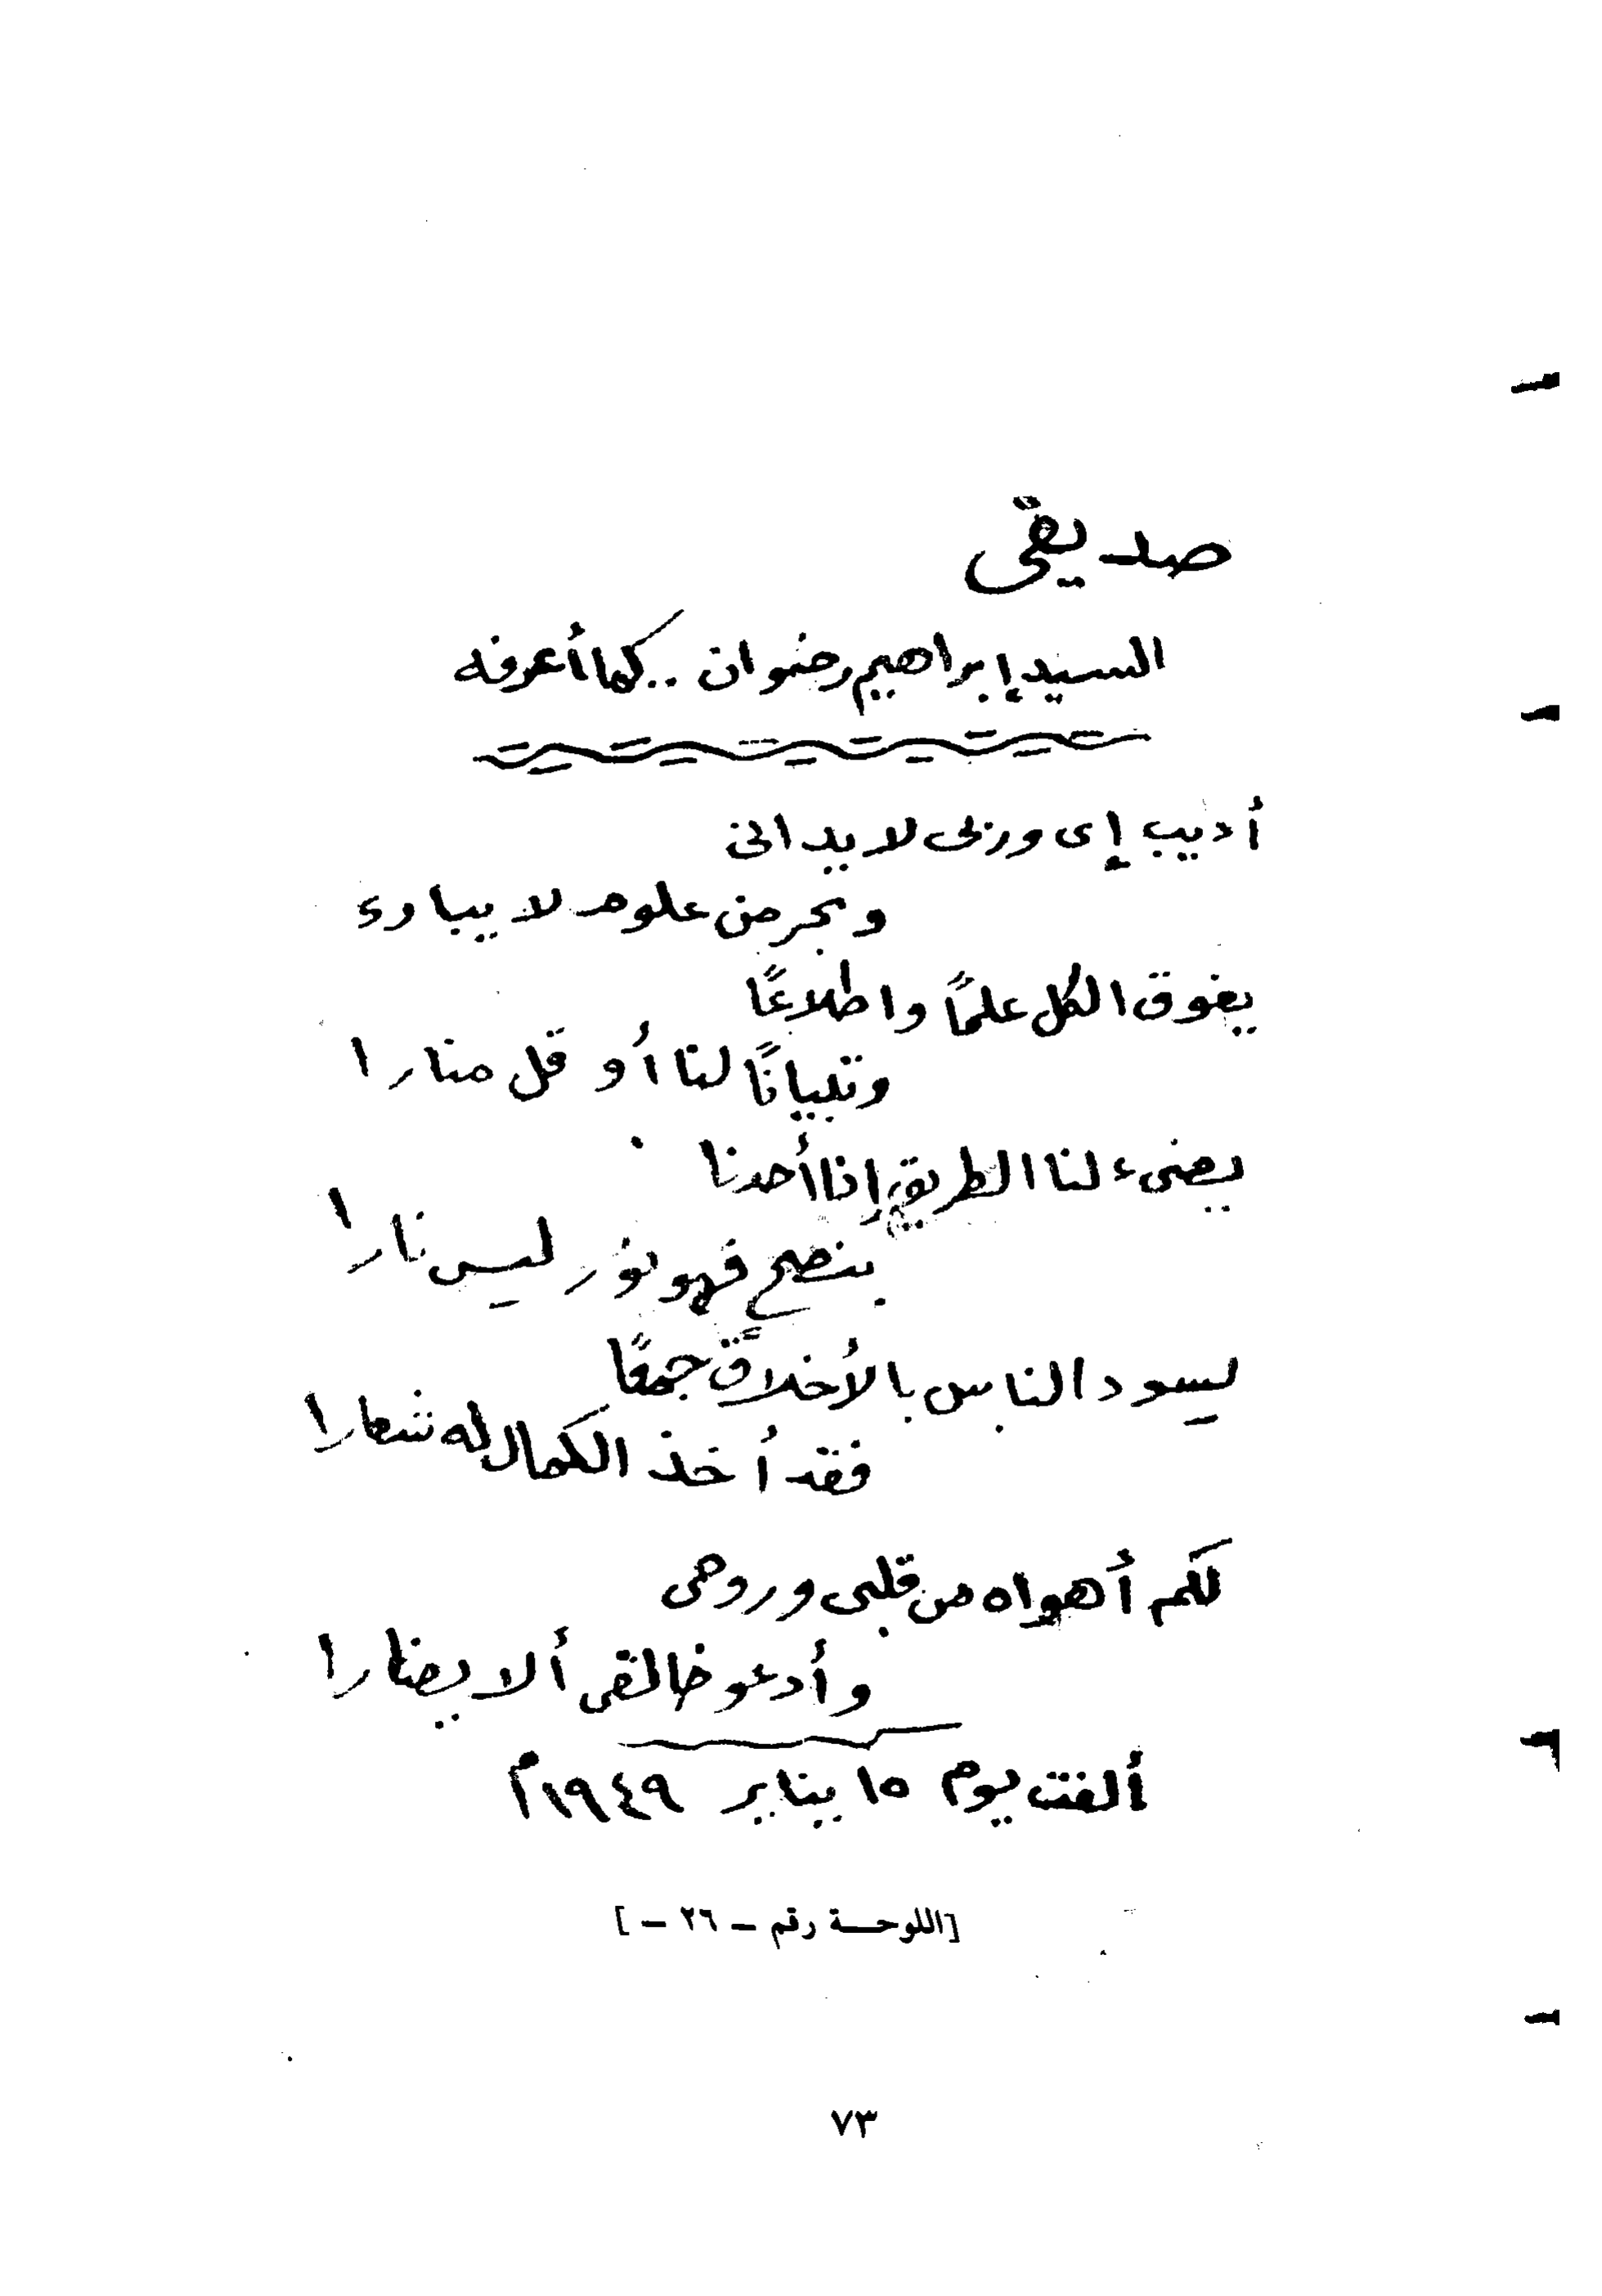 صديقى
السيد إبراهيم رضوان .. كما أعرفه
أديب إى وربى لا يدانى
وبحر من علوم لا يبارى
يفوق الكل علمًا واطلاعًا
وتبيانًا لنا أو قل منارا
يضىء لنا الطريق إذا أحدنا
بنصح فهو نور ليس نارا
يسود الناس بالأخلاق جمعًا
فقد أخذ الكمال له شعارا
لكم أهواه من قلبى وروحى
وأدعو خالقى ألا يضارا
ألفت يوم ١٥ يناير ١٩٤٩م
[اللوحة رقم – ٢٦ – ]
٧٣